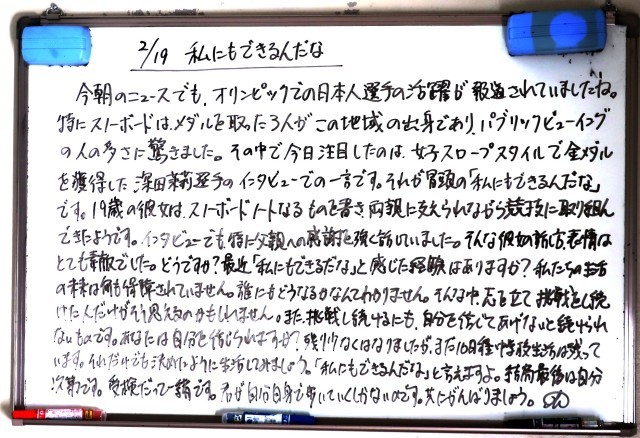 2/19 私にもできるんだな
今朝のニュースでも、オリンピックでの日本人選手の活躍が報道されていましたね。
特にスノーボードは、メダルを取った3人がこの地域の出身であり、パブリックビューイング
の人の多さに驚きました。その中で今日注目したのは、女子スロープスタイルで金メダル
を獲得した深田茉莉選手のインタビューでの一言です。それが冒頭の「私にもできるんだな」
です。19歳の彼女は、スノーボードノートなるものを書き、両親に支えられながら競技に取り組ん
できたようです。インタビューでも、特に父親への感謝を強く話していました。そんな彼女の表情は
とても素敵でした。どうですか?最近「私にもできるだな」と感じた経験はありますか?私たちの生活
の未来は何も保障されていません。誰にもどうなるかなんてわかりません。そんな中、志を立て挑戦をし続
けた人だけがそう思えるのかもしれません。また、挑戦し続けるにも、自分を信じてあげないと続けられ
ないものです。あなたは自分を信じられますか?残り少なくはなりましたが、まだ10日程中学校生活は残って
います。それだけでも決めたように生活してみましょう。「私にもできるんだな」と言えますよ。結局最後は自分
次第です。受験だって一緒です。君が自分自身で歩いていくしかないのです。共にがんばりましょう。